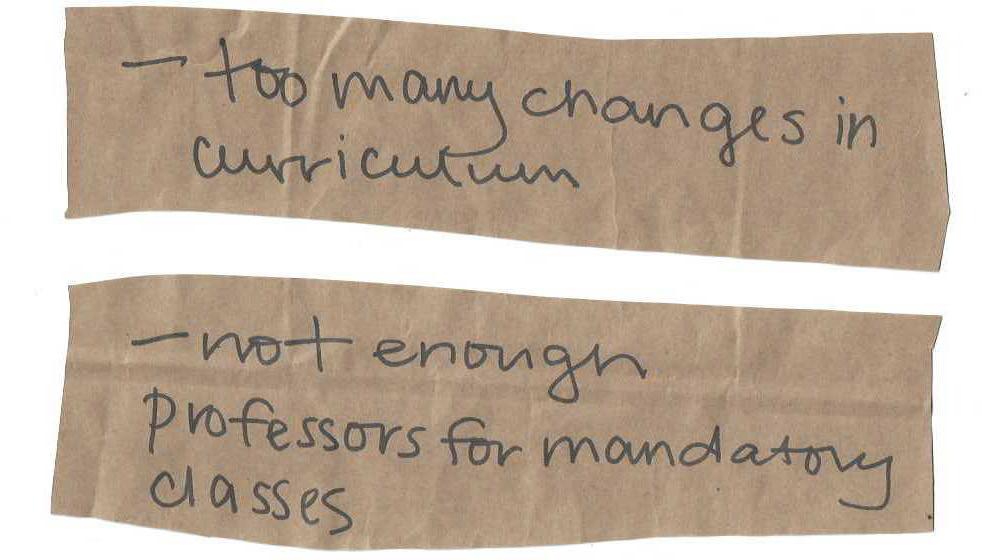 - too many changes in
curriculum
- not enough
professors for mandatory
classes